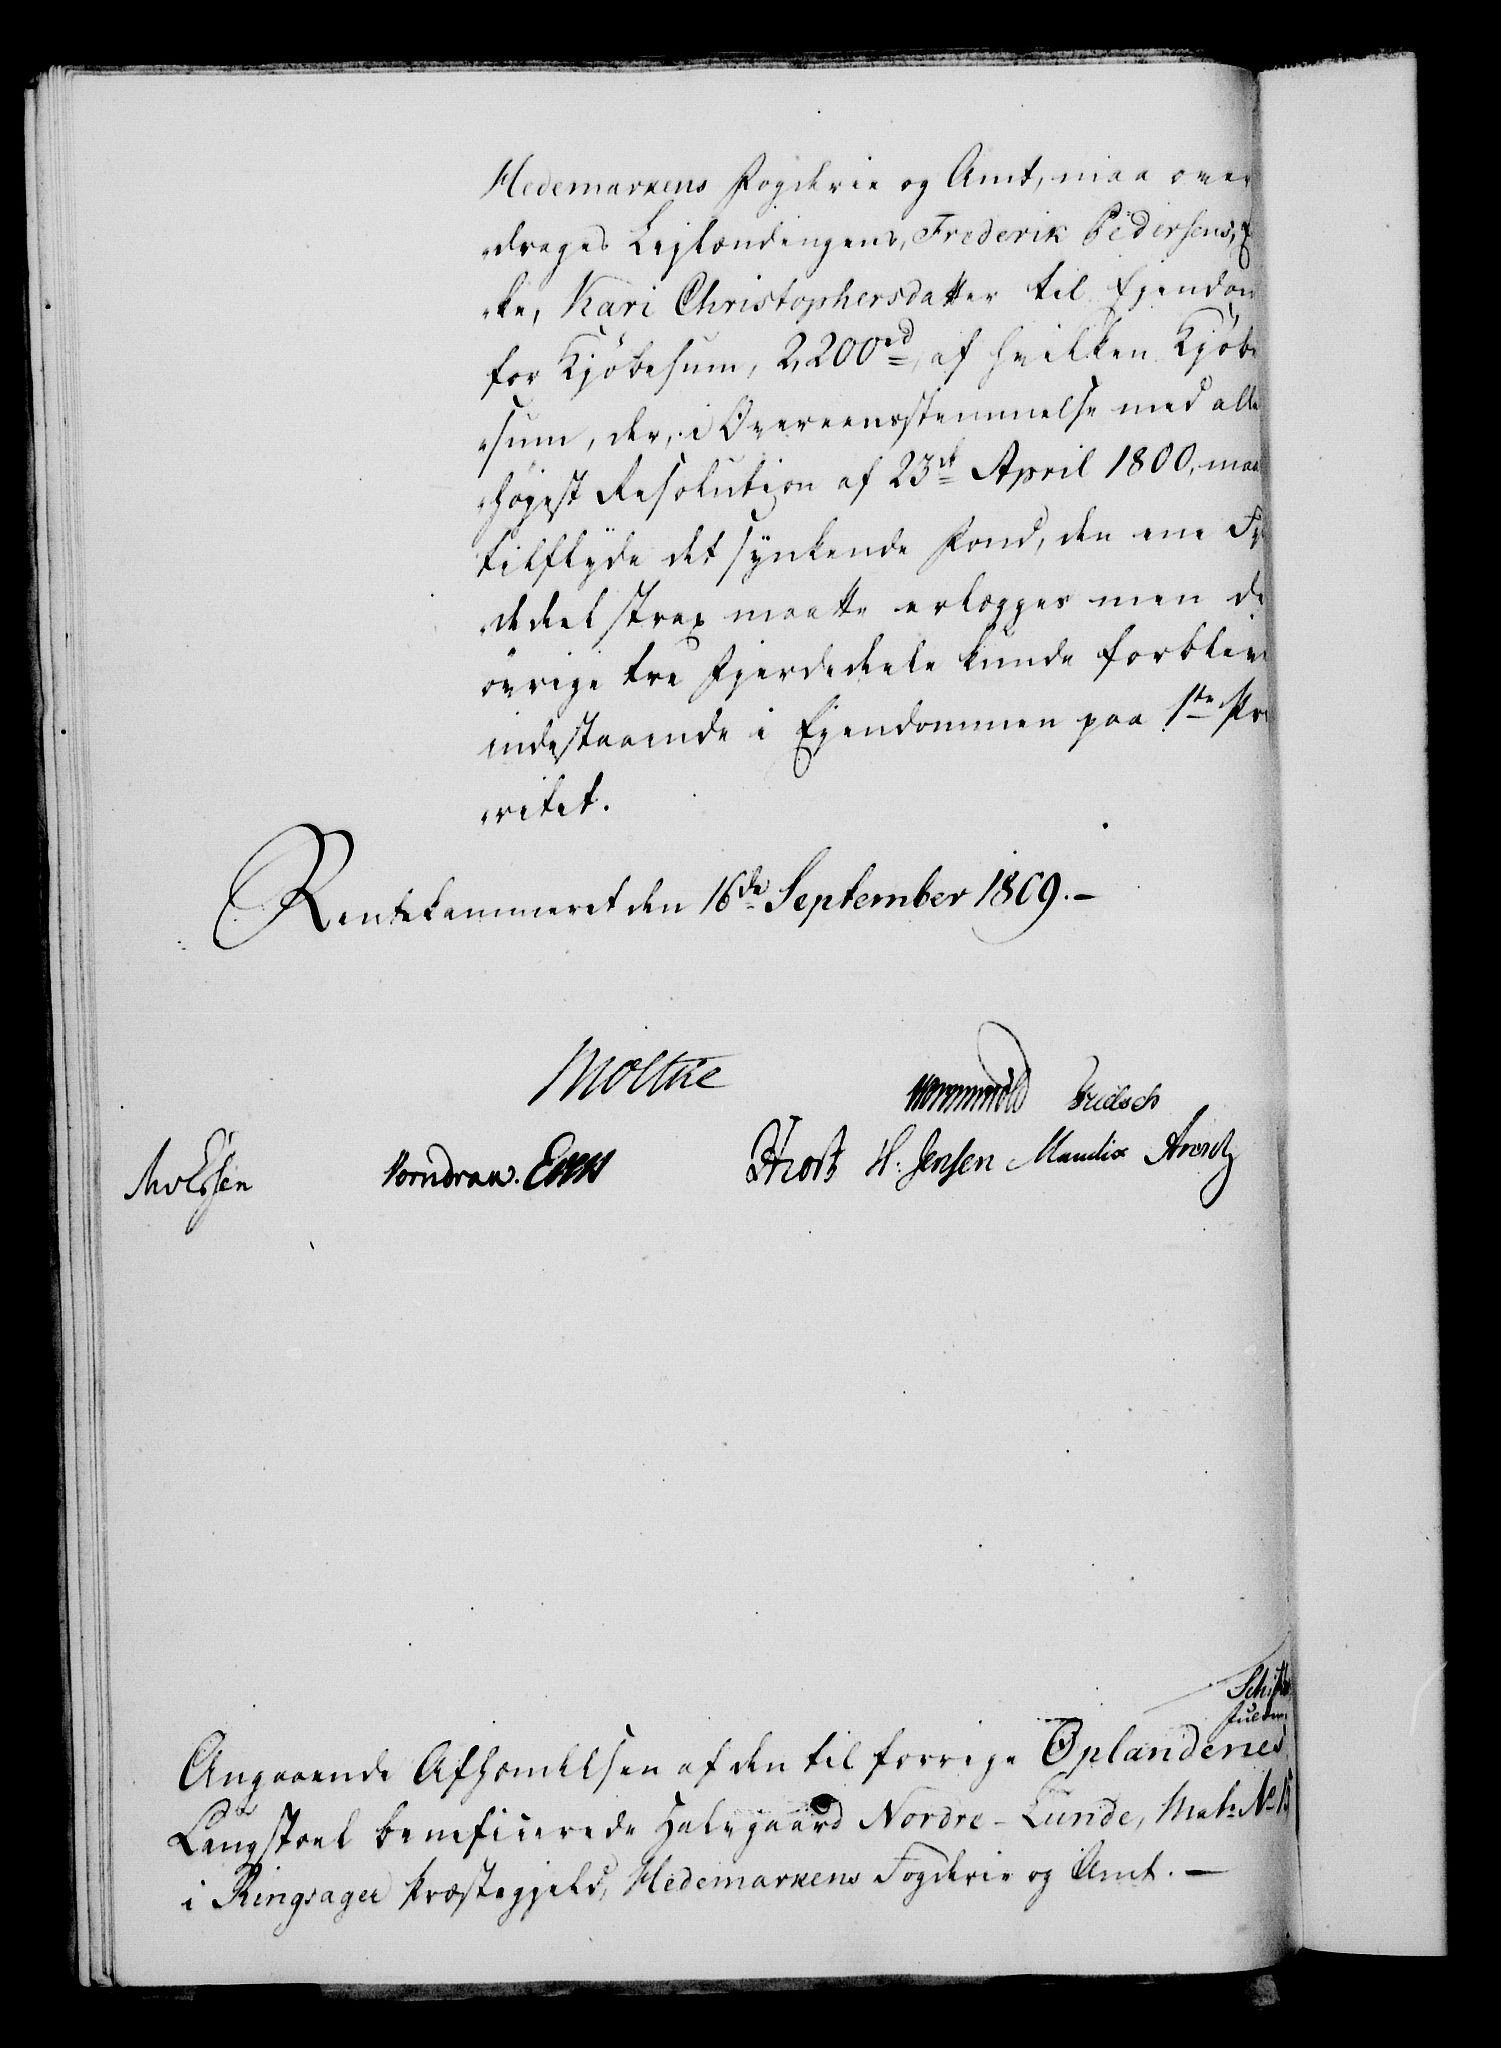 Hedemarkens Fogderie og Amt, maa over
drages Leylændingens, Frederik Pedersens, E
ke, Kari Christophersdatter til Ejendom
for Kjöbesum, 2,200rd, af hvilken Kjöbe
sum, der, i Overeensstemmelse med aller
höyest Resolution af 23de April 1800, maa
tilflyde det synkende Fond, den ene Fje
dedeel strax maatte erlægges men de
övrige tre Fjerdedeele kunde forblive
indestaaende i Ejendommen paa 1ste Pri
ritet.
Rentekammeret den 16de September 1809.-
Moltke
Wormskiold Fridsch
AvEssen
Vorndran. Eskes
Hrost H: Jensen Mandix Arentz
Schi
Angaaende Afhændelsen af den til forrige Oplandenes
Laugstoel beneficerede Halvegaard Nordre-Lunde, Mat: No 15
i Ringsager Præstegjeld, Hedemarkens Fogderie og Amt. -